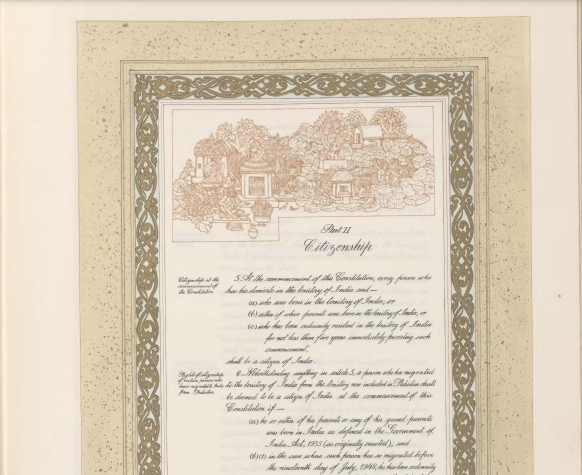 Part II
Citizenship
Citizenship at the
commencement of
the Constitution.
5. At the commencement of this Constitution, every person who
has his domicile in the territory of India and —
(a) who was born in the territory of India; or
(b) either of whose parents was born in the territory of India; or
(c) who has been ordinarily resident in the territory of India
for not less than five years immediately preceding such
commencement,
shall be a citizen of India.
Rights of citizenship
of certain persons who
have migrated to India
from Pakistan.
6. Notwithstanding anything in article 5, a person who has migrated
to the territory of India from the territory now included in Pakistan shall
be deemed to be a citizen of India at the commencement of this
Constitution if —
(a) he or either of his parents or any of his grand-parents
was born in India as defined in the Government of
India Act, 1935 (as originally enacted); and
(b)(i) in the case where such person has so migrated before
the nineteenth day of July, 1948, he has been ordinarily